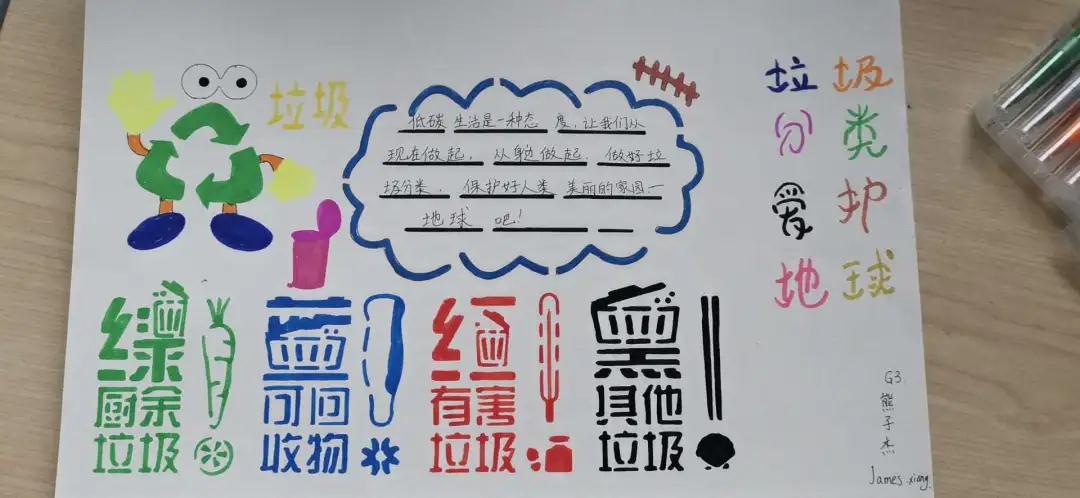 垃圾
低碳生活是一种态度，让我们从
现在做起，从身边做起，做好垃
圾分类，保护好人类美丽的家园一
地球吧！
垃圾
分类
爱护
地球
绿
厨余
垃圾
蓝
可回
收物
红
有害
垃圾
黑
其他
垃圾
G3
熊子杰
James.xiong.